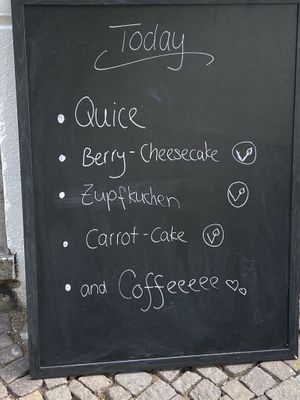 Today
• Quice
• Berry-Cheesecake V
• Zupfkuchen V
• Carrot-Cake V
• and Coffeeeee ♡♡